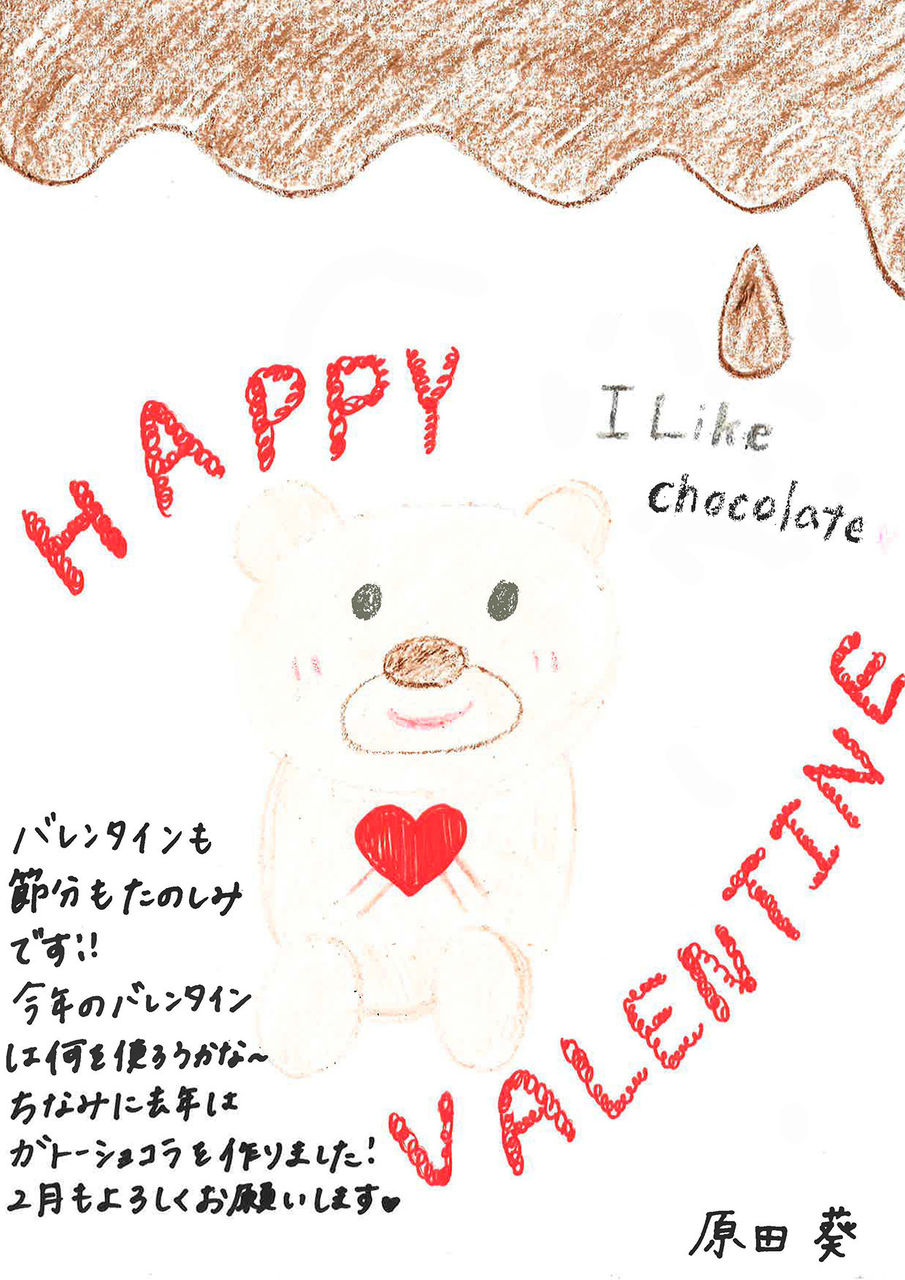 HAPPY
I Like
chocolate
VALENTINE
バレンタインも
節分もたのしみ
です!!
今年のバレンタイン
は何を使ろうかな～
ちなみに去年は
ガトーショコラを作りました!
2月もよろしくお願いします♥
原田 葵